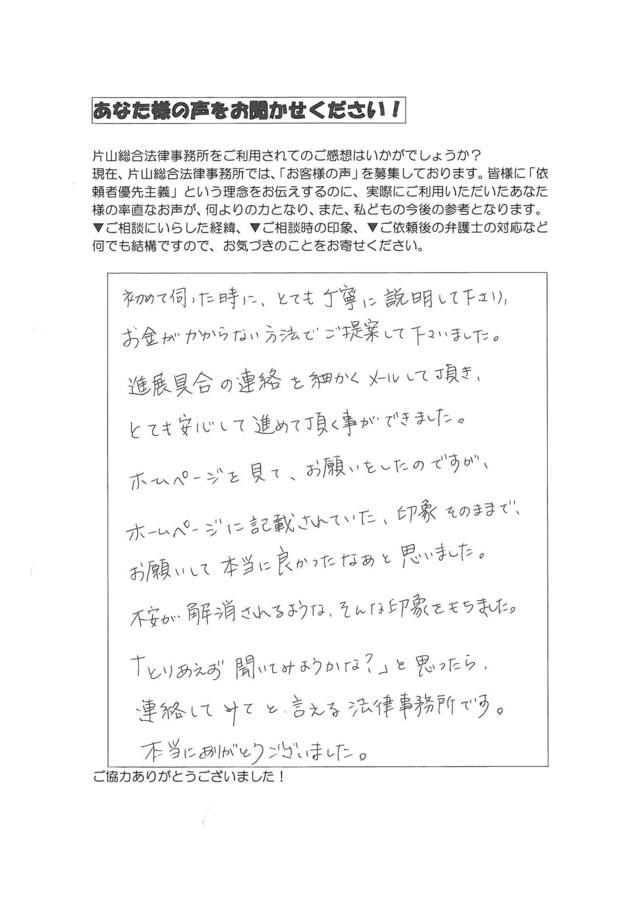 あなた様の声をお聞かせください！
片山総合法律事務所をご利用されてのご感想はいかがでしょうか？
現在、片山総合法律事務所では、「お客様の声」を募集しております。皆様に「依
頼者優先主義」という理念をお伝えするのに、実際にご利用いただいたあなた
様の率直なお声が、何よりの力となり、また、私どもの今後の参考となります。
▼ご相談にいらした経緯、▼ご相談時の印象、▼ご依頼後の弁護士の対応など
何でも結構ですので、お気づきのことをお寄せください。
初めて伺った時に、とても丁寧に説明して下さり、
お金がかからない方法でご提案して下さいました。
進展具合の連絡を細かくメールして頂き、
とても安心して進めて頂く事ができました。
ホームページを見て、お願いをしたのですが、
ホームページに記載されていた、印象そのままで、
お願いして本当に良かったなあと思いました。
不安が解消されるような、そんな印象をもちました。
「とりあえず聞いてみようかな？」と思ったら、
連絡してみてと言える法律事務所です。
本当にありがとうございました。
ご協力ありがとうございました！